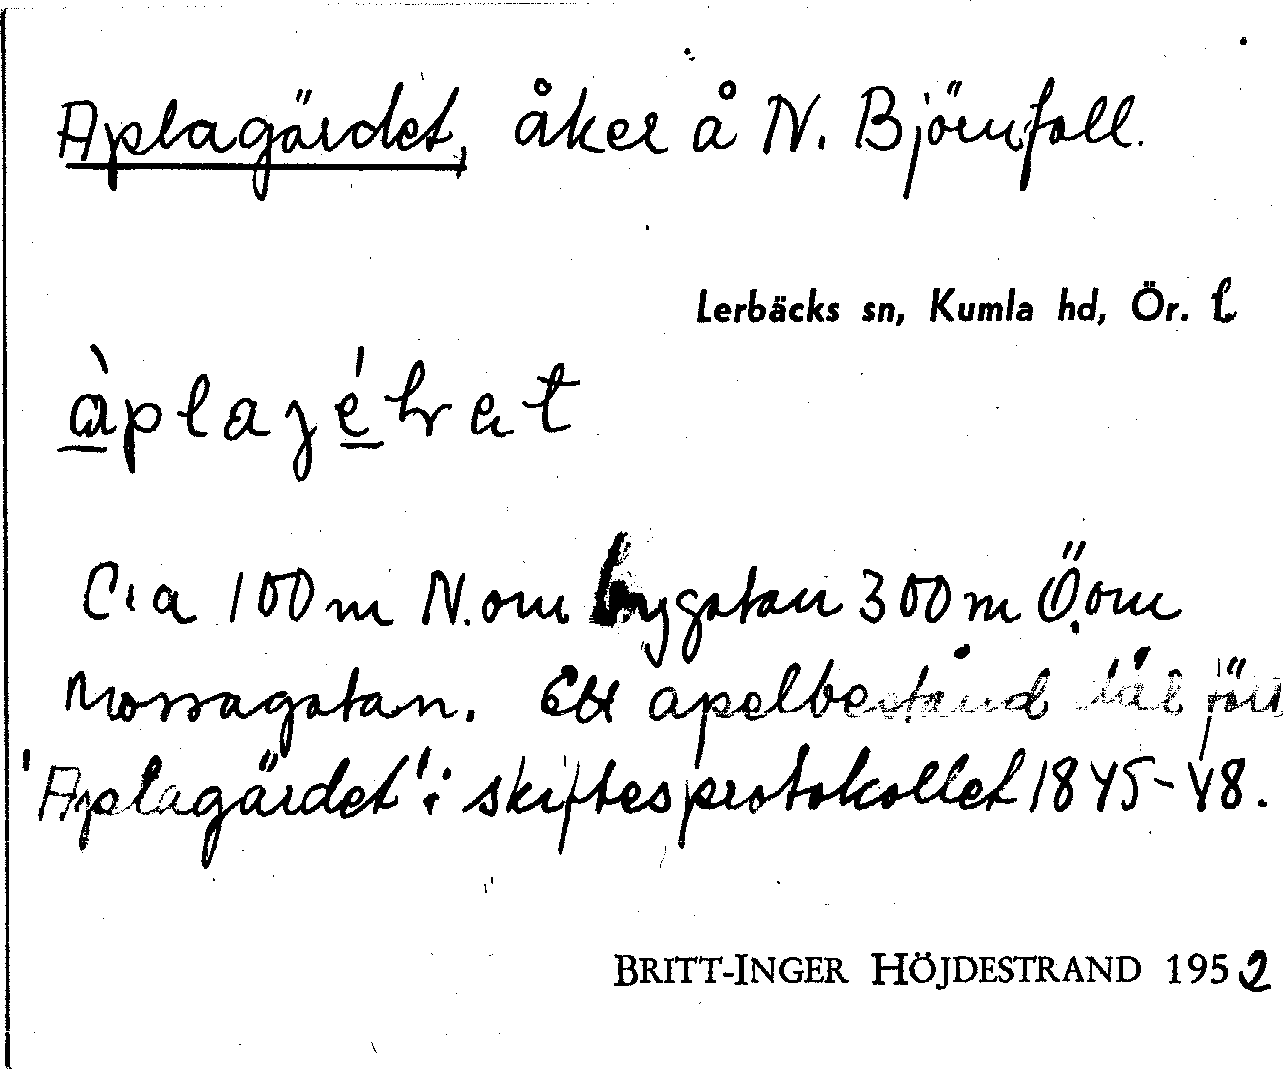 Aplagärdet, åker å N. Björnfall.
Lerbäcks sn, Kumla hd, Ör. l
C:a 100 m N. om bygatan 300 m Ö. om
Mossagatan. Ett apelbestånd där förr
'Aplagärdet' i skiftesprotokollet 1845-48.
BRITT-INGER HÖJDESTRAND 1952